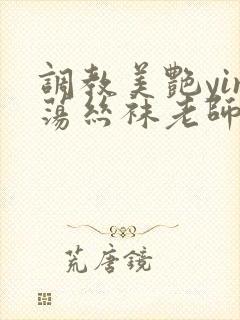 調教美艷yin
蕩絲袜老師
荒唐鏡